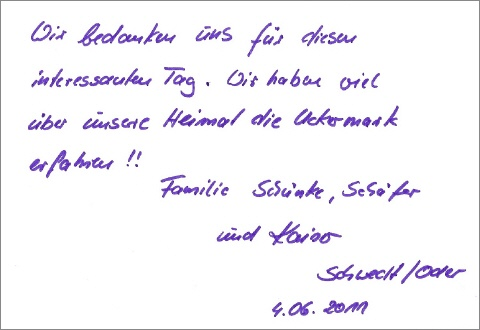 Wir bedanken uns für diesen
interessanten Tag. Wir haben viel
über unsere Heimat die Uckermark
erfahren !!
Familie Schinke, Schäfer
und
Schwedt/Oder
4.06.2011